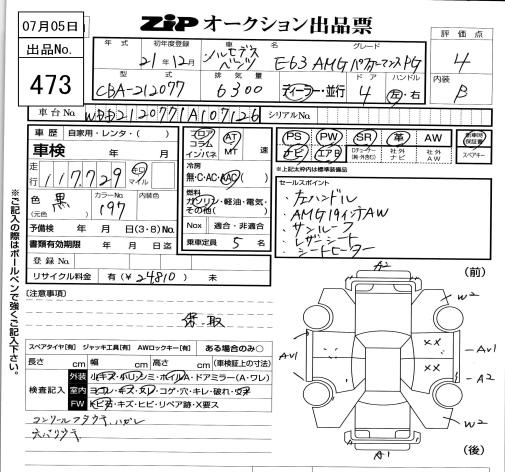 07月05日
出品No.
473
ZIP オークション出品票
評価点
4
内装
B
年式 初年度登録 21年12月
車名 メルセデスベンツ
グレード E63 AMG パフォーマンスPG
型式 CBA-212077
排気量 6300
ディーラー・並行
ドア 4
ハンドル 左・右
車台No. WDD2120771A107126 シリアルNo.
車歴 自家用・レンタ・( )
車検 年 月
走行 117,729 キロ マイル
色 黒 (元色)
カラーNo. 197
内装色
予備検 年 月 日(3・8)No.
書類有効期限 年 月 日迄
登録No.
リサイクル料金 有(¥24810) 未
フロア コラム インパネ
AT MT 速
冷房
無・C・AC・AAC( )
燃料
ガソリン・軽油・電気・その他( )
Nox 適合・非適合
乗車定員 5 名
PS PW SR 革 AW 新車時保証書
ナビ エアB Dチューナー(純・外含む) 社外ナビ 社外AW スペアキー
※上記太枠内は標準装備品
セールスポイント
・左ハンドル
・AMG19インチAW
・サンルーフ
・レザーシート
・シートヒーター
※ご記入の際はボールペンで強くご記入下さい。
[注意事項]
保・取
スペアタイヤ[有] ジャッキ工具[有] AWロックキー[有] ある場合のみ○
長さ cm 幅 cm 高さ cm (車検証上の寸法)
検査記入
外装 小キズ・小ハシミ・ホイルA・ドアミラー(A・ワレ)
室内 ヨゴレ・キズ・スレ・コゲ・穴・キレ・破れ・
FW ヒ石・キズ・ヒビ・リペア跡・X要ス
コンソールフタウキ、ハガレ
(前)
A2
W2
AW1
XX
AW1
XX
A2
W2
A1
(後)